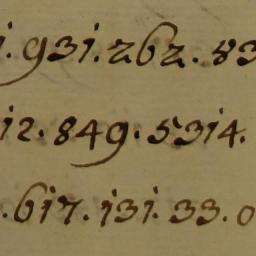 1.931.262.83
12.849.5314.
.617.131.33.0